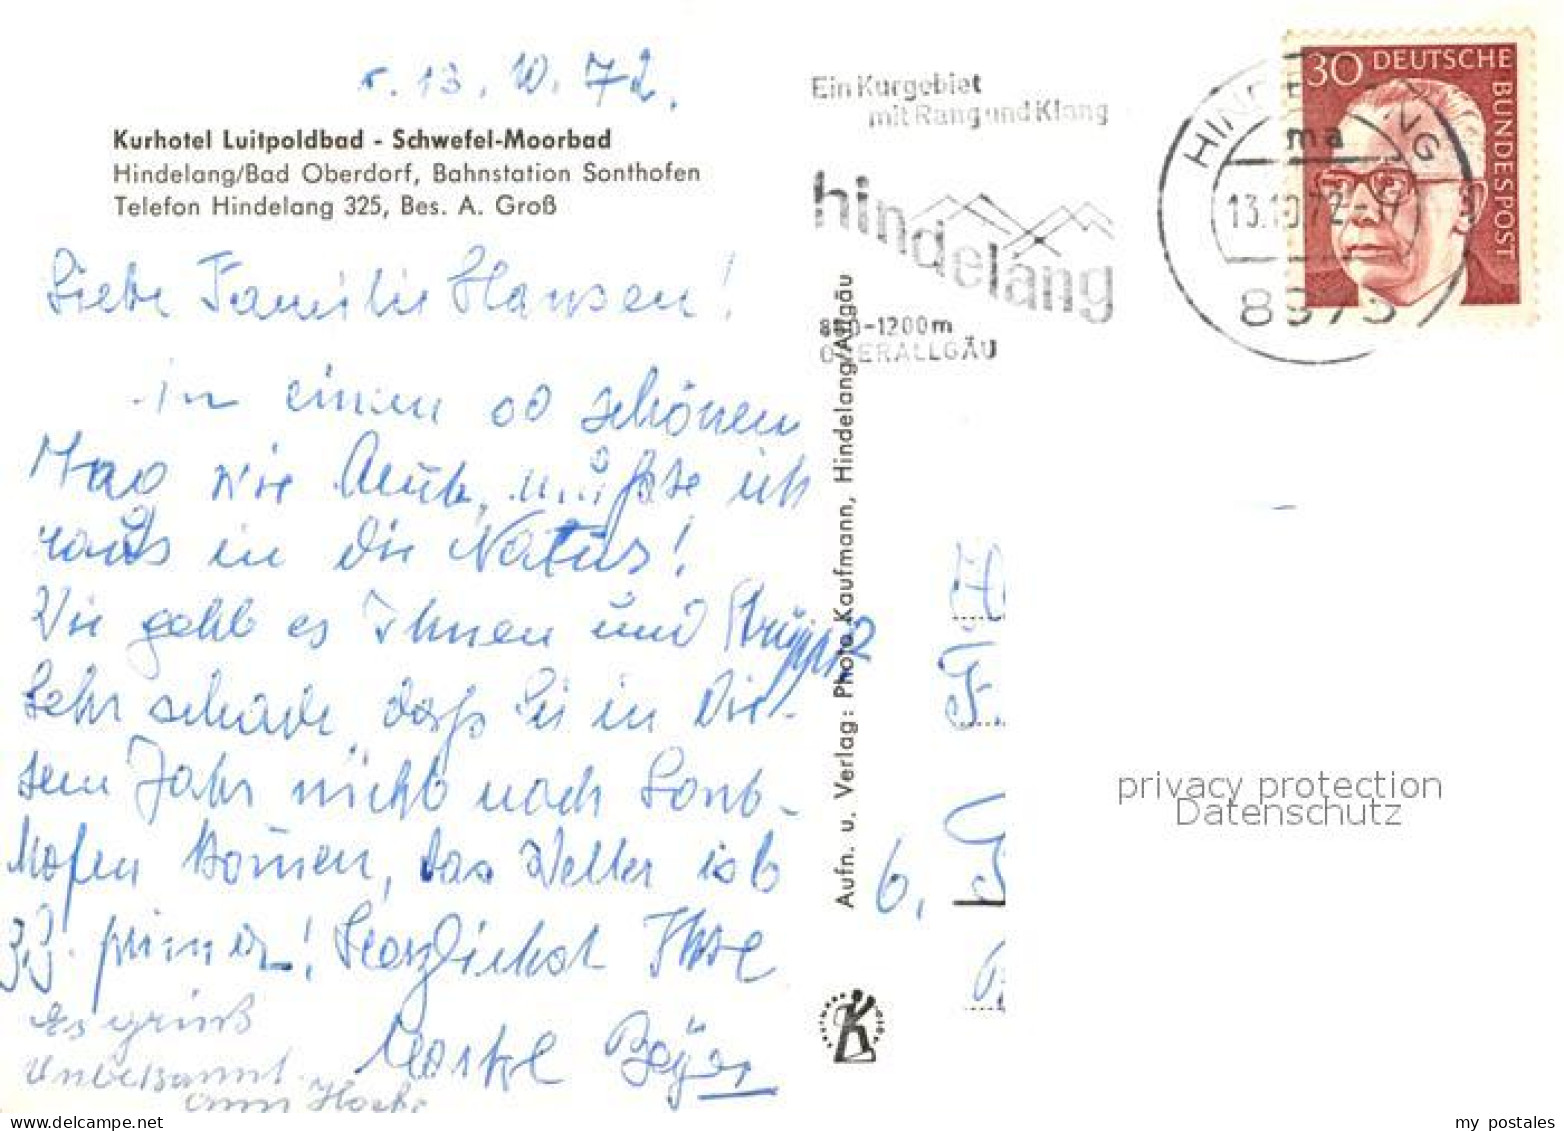 r. 13. 10. 72.
Kurhotel Luitpoldbad - Schwefel-Moorbad
Hindelang/Bad Oberdorf, Bahnstation Sonthofen
Telefon Hindelang 325, Bes. A. Groß
Liebe Familie Hansen!
In einem so schönen
Tag wie heute, müßte ich
raus in die Natur!
Wie geht es Ihnen und Struppi
Sehr schade, daß Sie in die-
sem Jahr nicht nach Sont-
hofen kom̄en, das Wetter ist
z.Z. prima! Herzlichst Ihre
Beyer
Es grüßt
Unbekannt
Ein Kurgebiet
mit Rang und Klang
hindelang
850-1200m
OBERALLGÄU
HINDELANG
ma
13.10.72-17
8973
30 DEUTSCHE
BUNDESPOST
Aufn. u. Verlag: Photo Kaufmann, Hindelang/Allgäu
H
F.
6,
privacy protection
Datenschutz
www.delcampe.net
my_postales